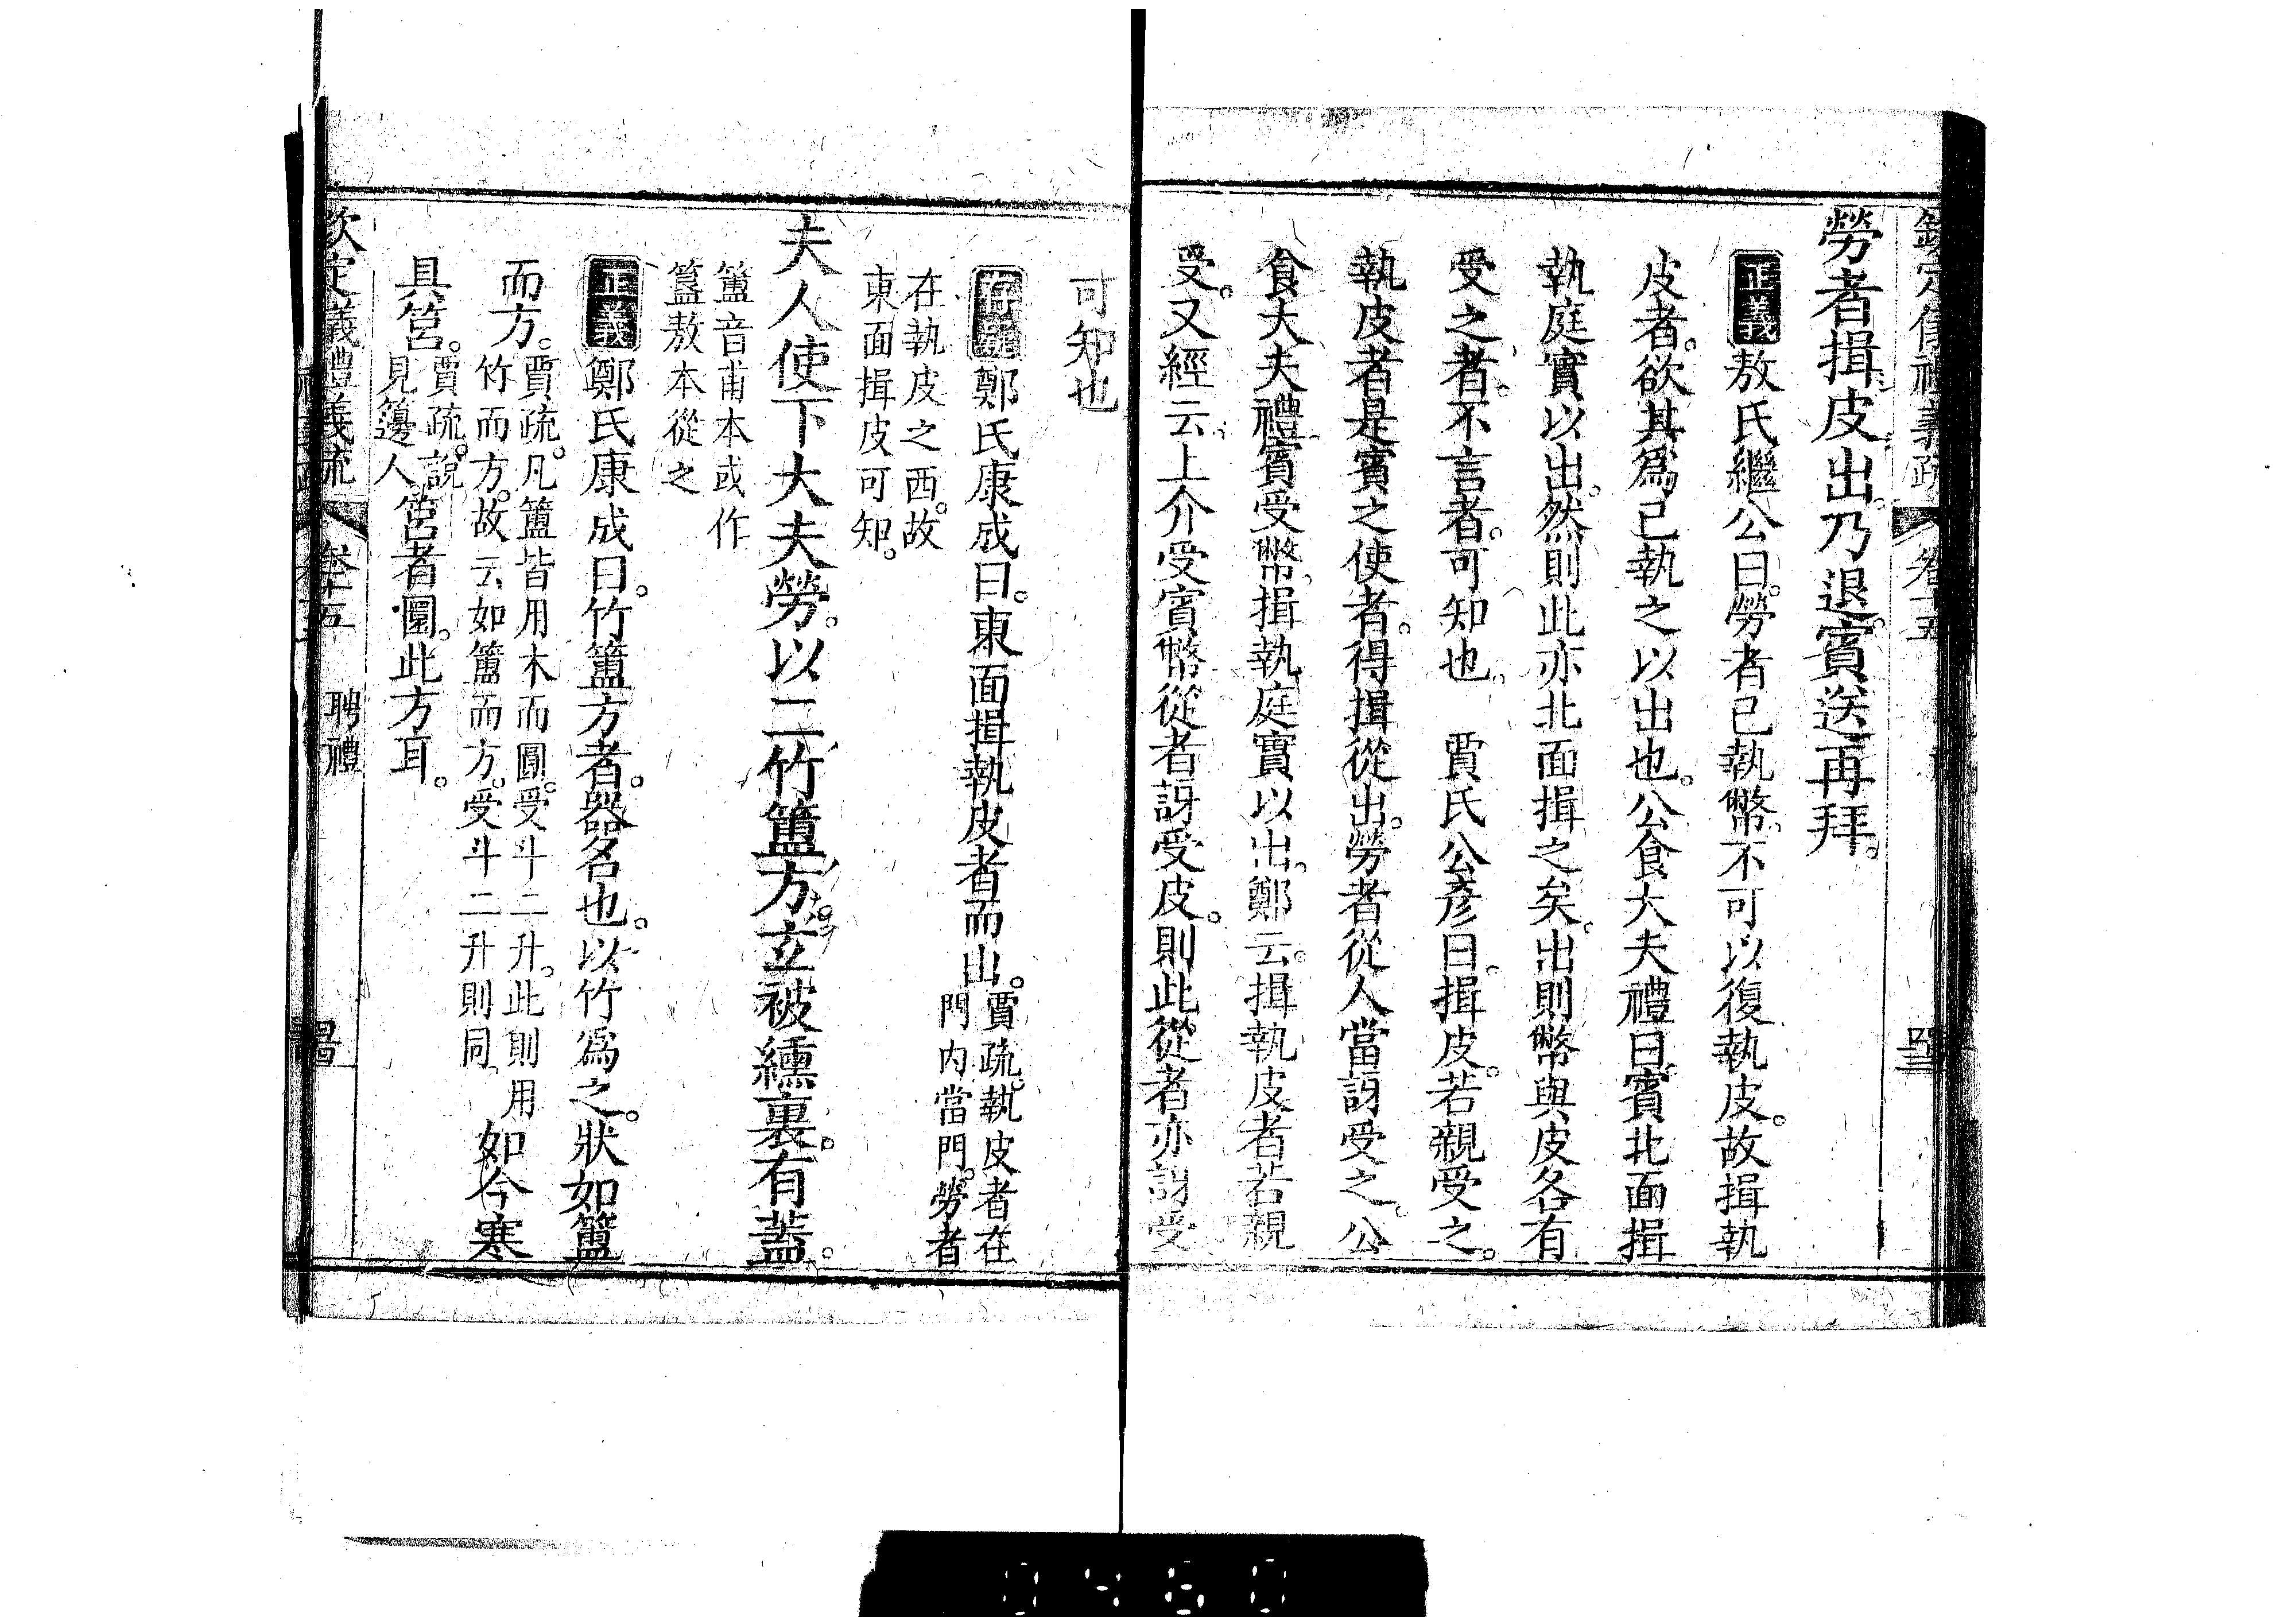 勞者揖皮出。乃退。賓送再拜。
正義敖氏繼公曰。勞者已執幣。不可以復執皮。故揖執
皮者。欲其爲已執之以出也。公食大夫禮曰。賓北面揖
執庭實以出。然則此亦北面揖之矣。出則幣與皮各有
受之者。不言者。可知也　賈氏公彥曰。揖皮。若親受之。
執皮者是賓之使者。得揖從出。勞者從人當訝受之。公
食大夫禮。賓受幣。揖執庭實以出。鄭云。揖執皮者若親
受。又經云。上介受賓幣。從者訝受皮。則此從者亦訝受
可知也
鄭氏康成曰。東面揖執皮者而出。賈疏。執皮者在
門內當門。勞者
在執皮之西。故
東面揖皮可知。
夫人使下大夫勞。以二竹簠方。玄被纁裏。有蓋。
簠音甫本或作
簋敖本從之
正義鄭氏康成曰。竹簠方者。器名也。以竹爲之。狀如簠
而方。賈疏。凡簠皆用木而圓。受斗二升。此則用
竹而方。故云如簠而方。受斗二升則同。如今寒
具筥。賈疏。說
見籩人筥者圜。此方耳。
欽定儀禮義疏　卷十五　聘禮